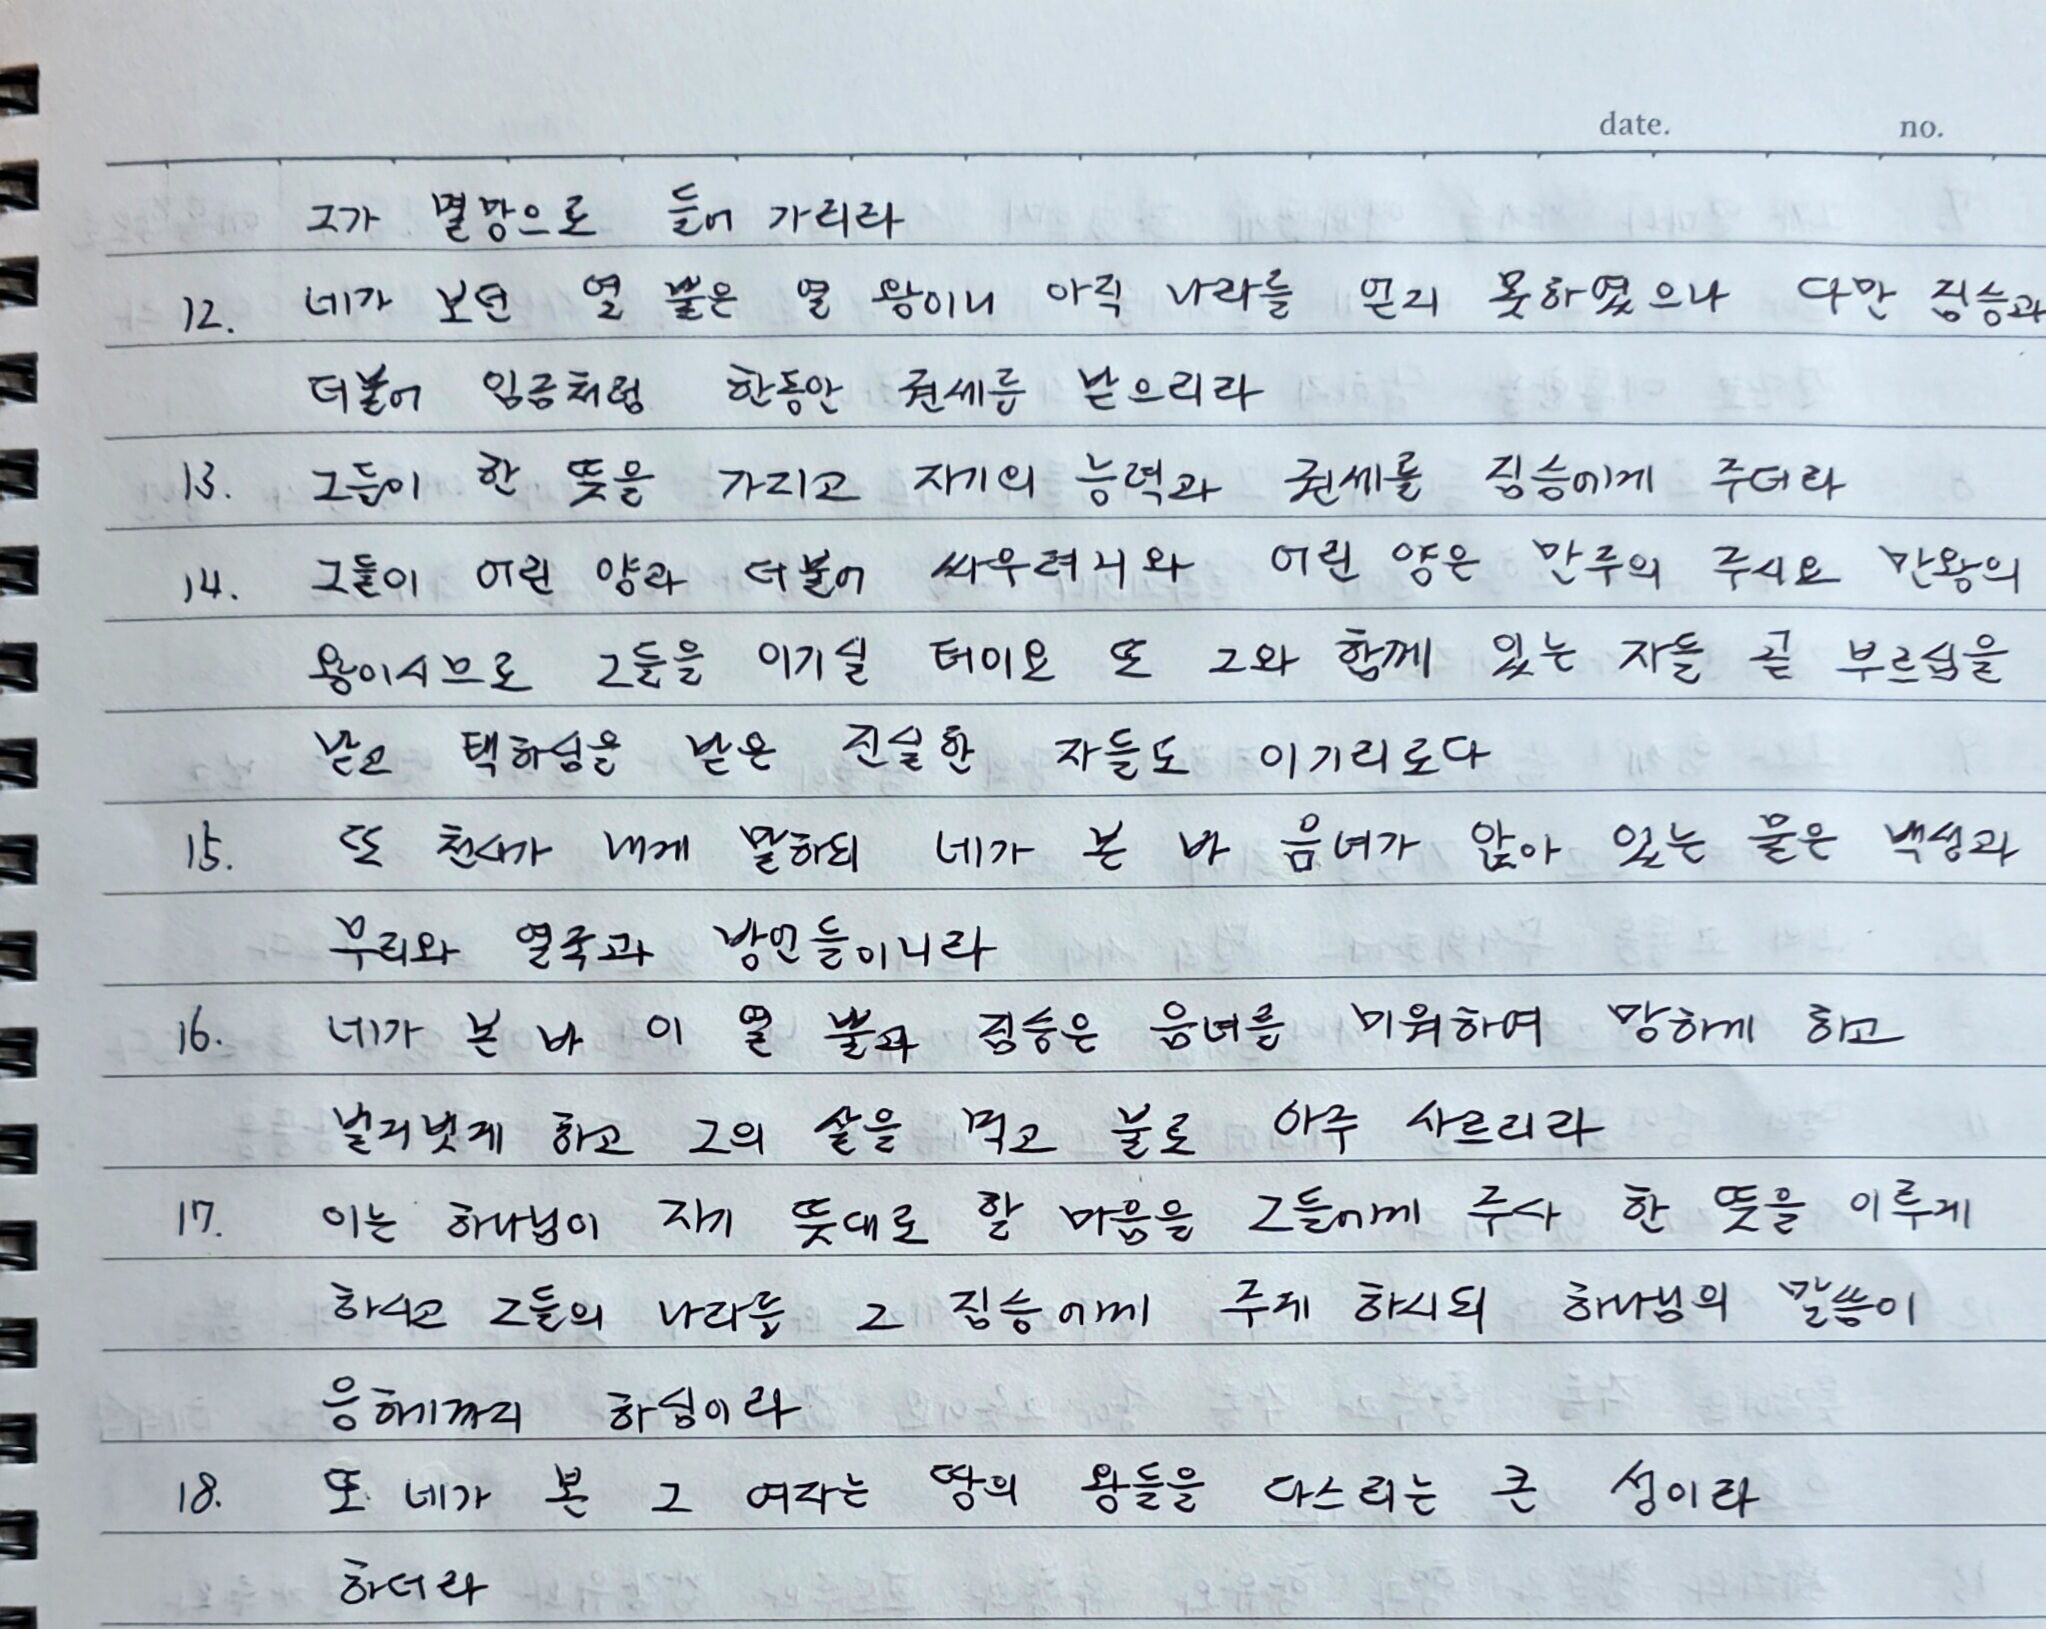 date. no.
그가 멸망으로 들어 가리라
12. 네가 보던 열 뿔은 열 왕이니 아직 나라를 얻지 못하였으나 다만 짐승과
더불어 임금처럼 한동안 권세를 받으리라
13. 그들이 한 뜻을 가지고 자기의 능력과 권세를 짐승에게 주더라
14. 그들이 어린 양과 더불어 싸우려니와 어린 양은 만주의 주시요 만왕의
왕이시므로 그들을 이기실 터이요 또 그와 함께 있는 자들 곧 부르심을
받고 택하심을 받은 진실한 자들도 이기리로다
15. 또 천사가 내게 말하되 네가 본 바 음녀가 앉아 있는 물은 백성과
무리와 열국과 방언들이니라
16. 네가 본 바 이 열 뿔과 짐승은 음녀를 미워하여 망하게 하고
벌거벗게 하고 그의 살을 먹고 불로 아주 사르리라
17. 이는 하나님이 자기 뜻대로 할 마음을 그들에게 주사 한 뜻을 이루게
하시고 그들의 나라를 그 짐승에게 주게 하시되 하나님의 말씀이
응하기까지 하심이라
18. 또 네가 본 그 여자는 땅의 왕들을 다스리는 큰 성이라
하더라